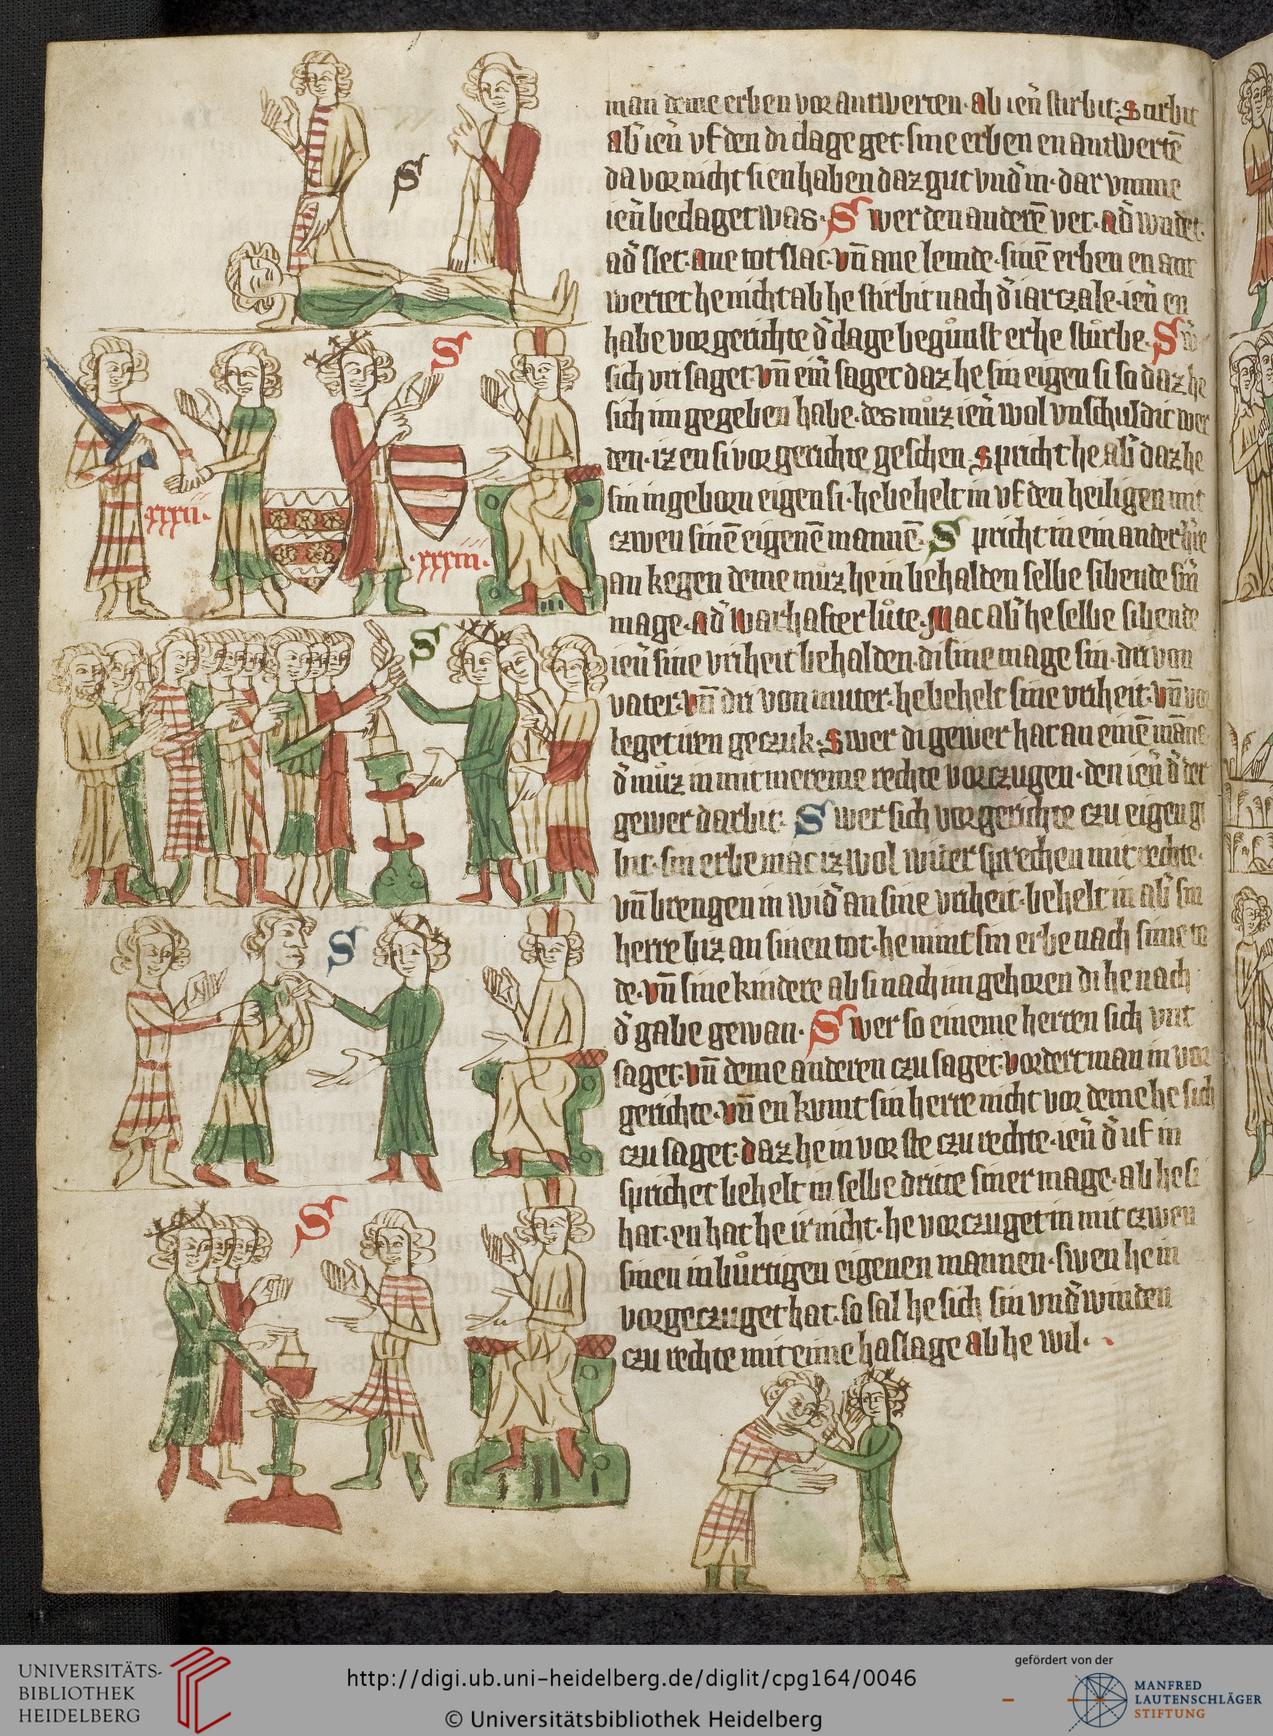 man deme erben vor antwerten · ab ien̄ stirbit · Stirbit
ab̓ ien̄ vf den di clage get · sine erben en antwertē
da vor nicht si en haben daz gut vnd̓ in · dar vmme
ien̄ beclaget was · Swer den anderē vet · ad̓ wndet ·
ad̓ slet · ane totslac · vn̄ ane lemde · sinē erben en ant
wertet he nicht ab he stirbit nach d̓ iartzale · ien̄ en
habe vor gerichte d̓ clage begůnst er he stůrbe · Sw̓
sich vri saget · vn̄ ein̓ saget daz he sin eigen si so daz he
sich im gegeben habe · des můz ien̄ wol vnschuldic wer
den · iz en si vor gerichte geschen · Spricht he ab̓ daz he
sin ingeborn eigen si · he behelt in vf den heiligen mit
czwen sinē eigenē mannē · Spricht in ein ander h̓re
an kegen deme muz he in behalden selbe sibende sin̓
mage · ad̓ warhafter lůte · Mac ab̓ he selbe sibende
ien̄ sine vriheit behalden · di sine mage sin · dri von
vater · vn̄ dri von muter · he behelt sine vriheit · vn̄ vor
leget iren geczuk · Swer di gewer hat an einē māne
d̓ můz in mit mereme rechte vorczugen · den ien̄ d̓ der
gewer darbit · Swer sich vor gerichte czu eigen gi
bit · sin erbe mac iz wol wider sprechen mit rechte ·
vn̄ brengen in wid̓ an sine vriheit · behelt in ab̓ sin
herre biz an sinen tot · he nimt sin erbe nach sime to
de · vn̄ sine kindere ab si nach im gehoren di he nach
d̓ gabe gewan · Swer so eineme herren sich vnt
saget · vn̄ deme anderen czu saget · vordert man in vor
gerichte · vn̄ en kumt sin herre nicht vor deme he sich
czu saget · daz he in vor ste czu rechte · ien̄ d̓ uf in
sprichet behelt in selbe dritte siner mage · ab he si
hat · en hat he ir nicht · he vorczuget in mit czwen
sinen inbůrtigen eigenen mannen · swen he in
vorgeczuget hat · so sal he sich sin vnd̓ winden
czu rechte mit eime halslage ab he wil ·
S
S
·xxxii·
·xxxiii·
S
S
S
UNIVERSITÄTS-
BIBLIOTHEK
HEIDELBERG
http://digi.ub.uni-heidelberg.de/diglit/cpg164/0046
© Universitätsbibliothek Heidelberg
gefördert von der
MANFRED
LAUTENSCHLÄGER
STIFTUNG